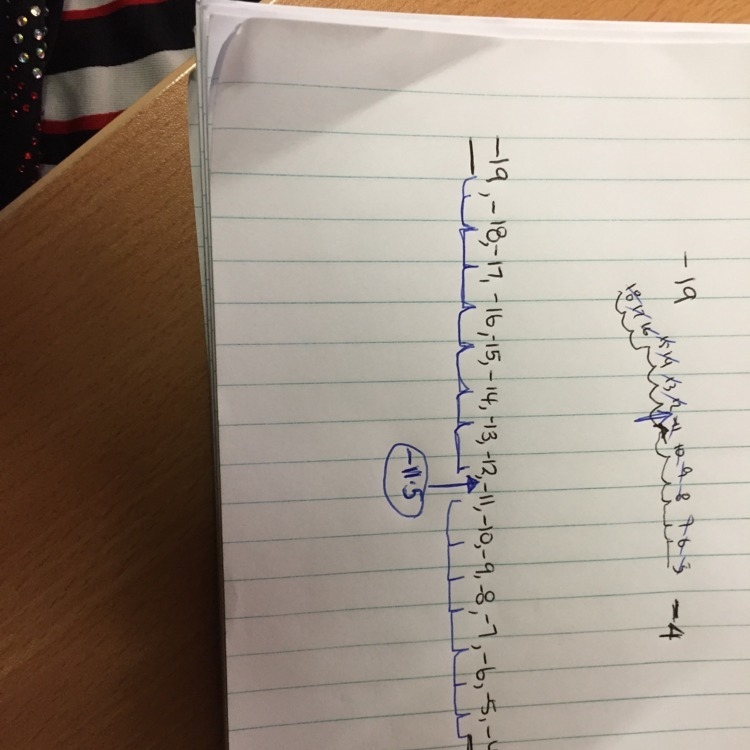 -19 -4
18 17 16 15 14 13 12 11 10 9 8 7 6 5
-19, -18, -17, -16, -15, -14, -13, -12, -11, -10, -9, -8, -7, -6, -5, -4
-11.5